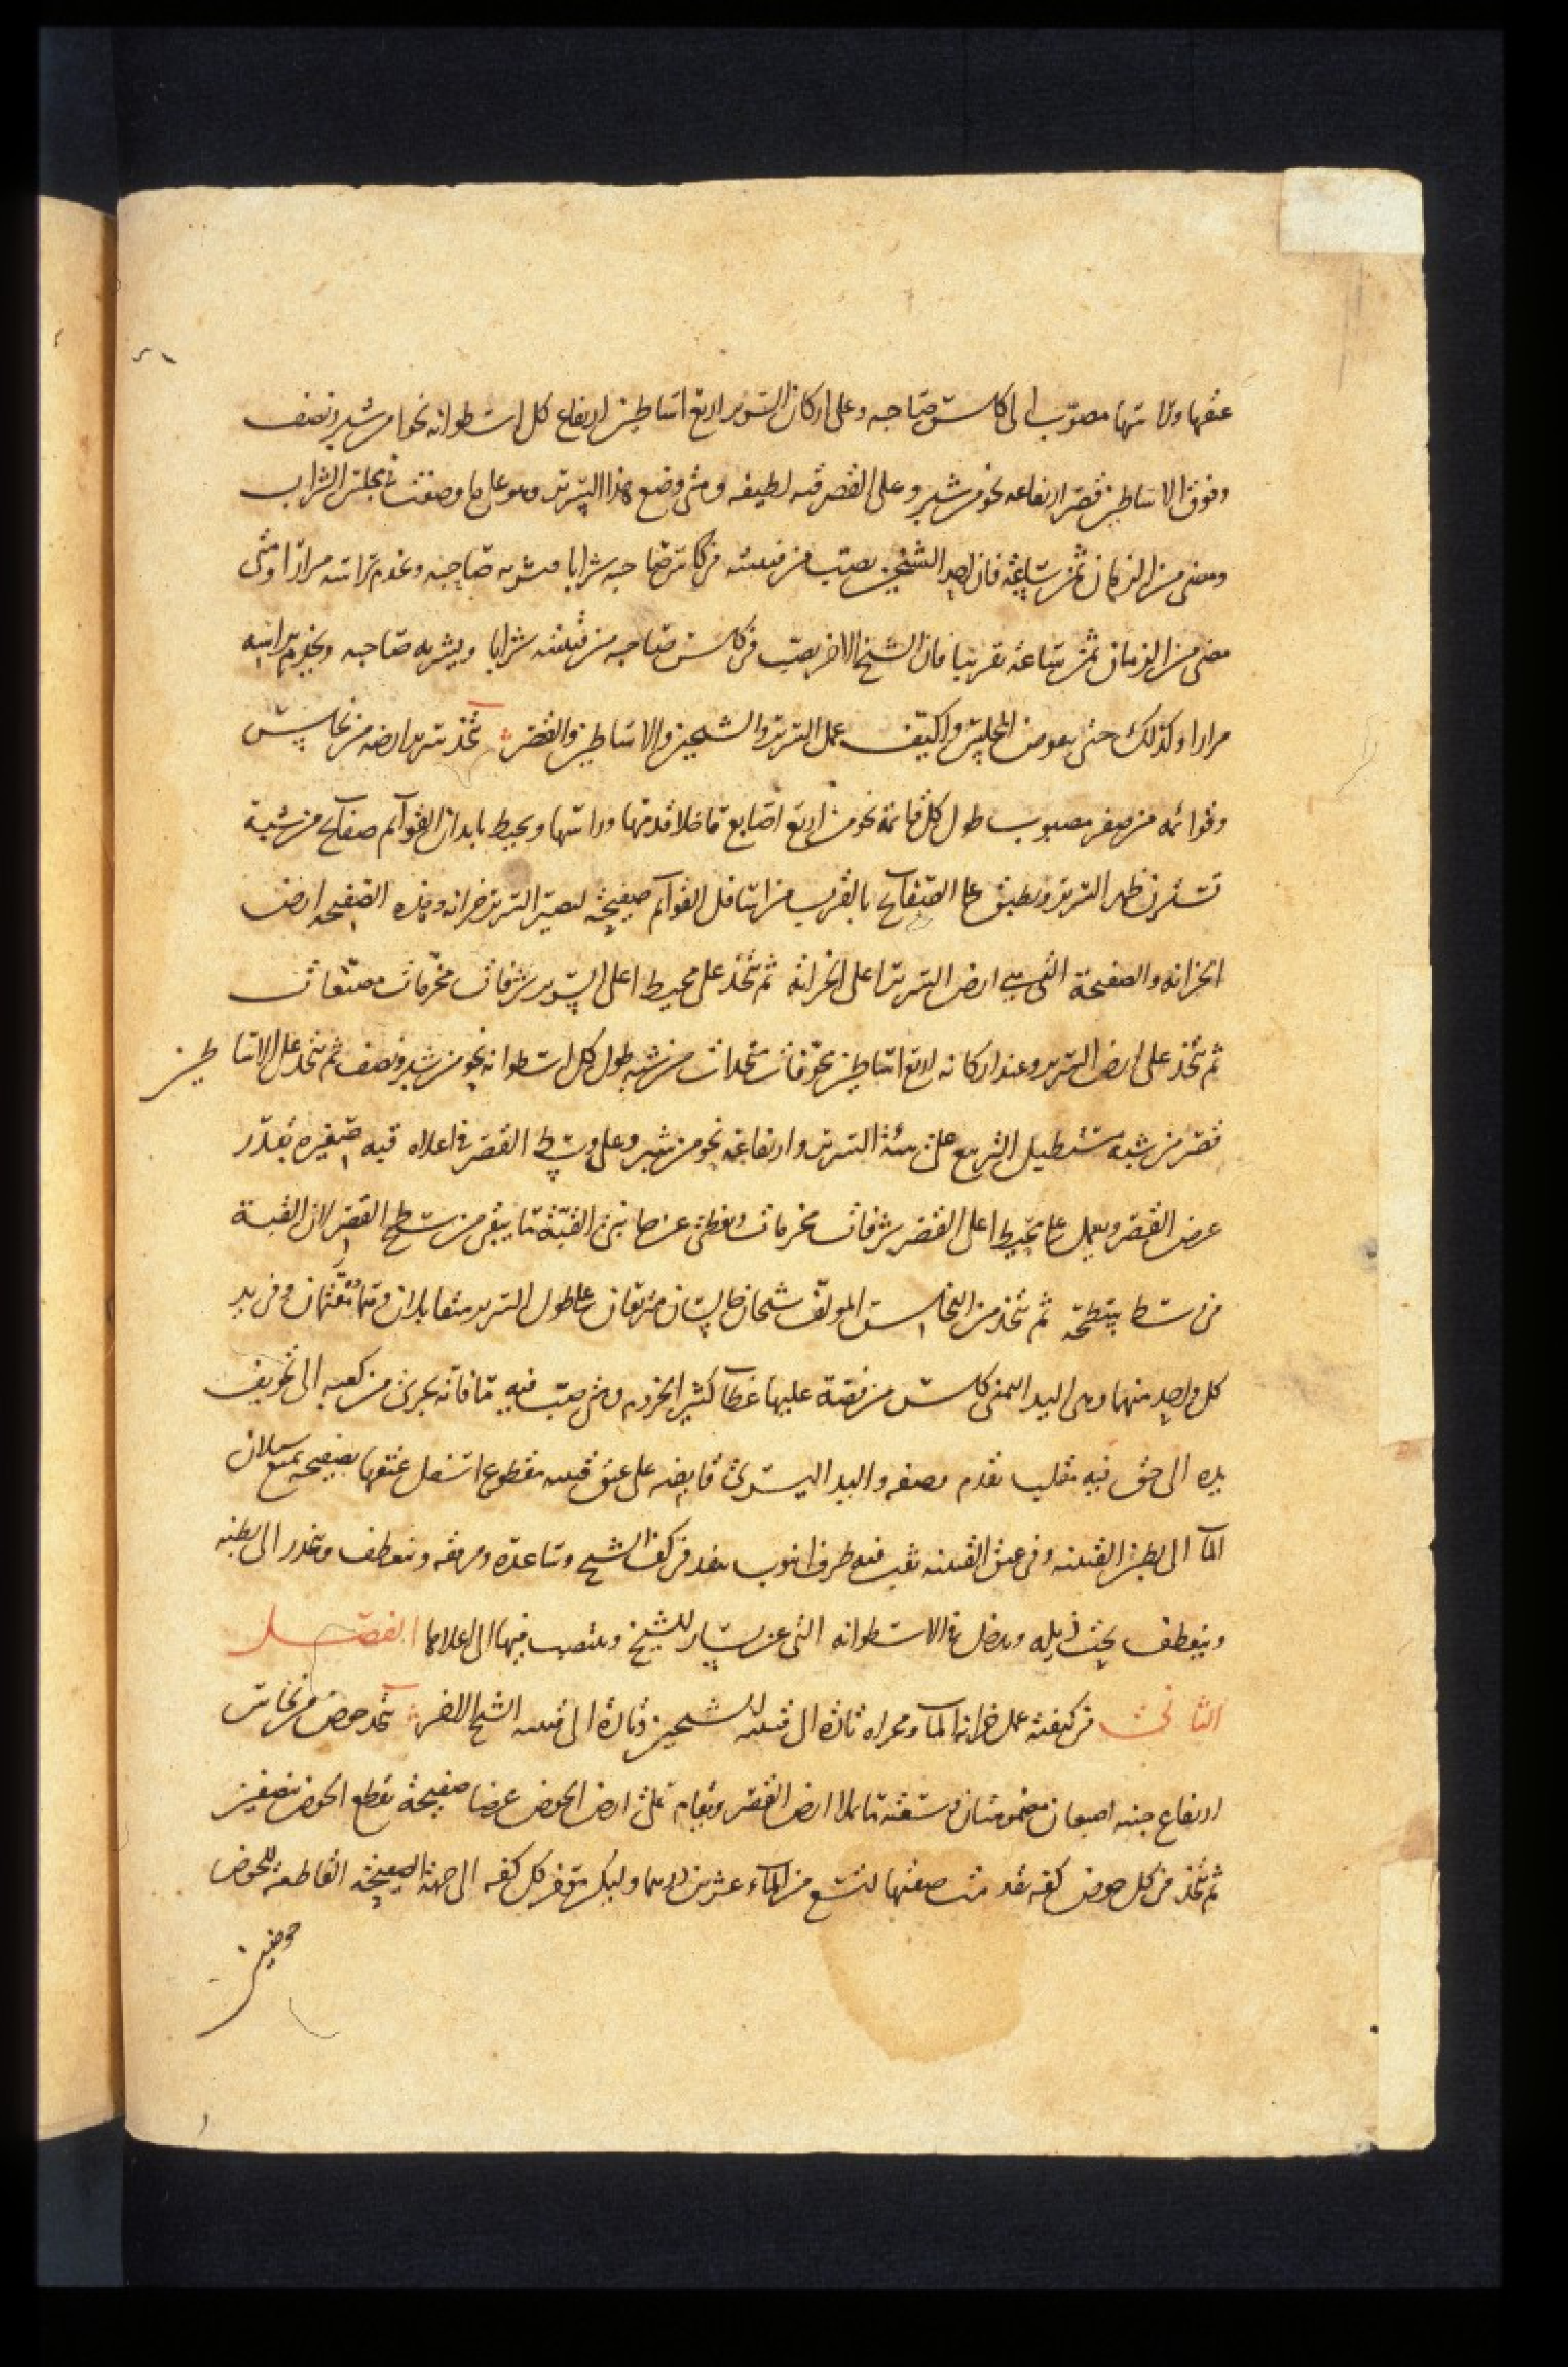 عنقها وراسها مصوب الى كاس صاحبه وعلى اركان السرير اربع اساطين ارتفاع كل اسطوانه نحو من شبر ونصف
وفوق الاساطين قصر ارتفاعه نحو من شبر وعلى القصر قبه لطيفه ومتى وضع هذا السرير وهو على ما وصفت في مجلس الشراب
ومضى من الزمان ثمن ساعة فان احد الشيخين يصب من قنينته في كاس صاحبه شرابا فيشربه صاحبه وتخدم براسه مرارا ومتى
مضى من الزمان ثمن ساعة تقريبا فان الشيخ الاخر يصب في كاس صاحبه من قنينته شرابا ويشربه صاحبه ويخدم براسه
مرارا وكذلك حتى يعوض المجلس واكتف عمل السرير والشيخين والاساطين والقصر يتخذ سرير ارضه من نحاس
وقوائمه من صفر مصبوب طول كل قائمة نحو من اربع اصابع ما خلا قدمها وراسها ويحيط بابدان القوائم صفائح من شبه
تستر ظهر السرير ويطبق على الصفائح بالقرب من اسافل القوائم صفيحة ليصير السرير خزانه وهذه الصفيحه ارض
الخزانه والصفيحة التي هي ارض السرير اعلى الخزانة ثم يتخذ على محيط اعلى السرير شرفات مخرمات
ثم يتخذ على ارض السرير وعند اركانه اربع اساطين مجوفات متخذات من شبه طول كل اسطوانه نحو من شبر ونصف ثم يتخذ على الاساطين
قصر من شبه مستطيل التربيع على هيئة السرير وارتفاعه نحو من شبر وعلى وسط القصر في اعلاه قبه صغيره بقدر
عرض القصر ويعمل على محيط اعلى القصر شرفات مخرمات ويغطى عن جانبي القبة ما يبقى من سطح القصر لان القبة
في وسط سطحه ثم يتخذ من النحاس المولف شيخان جالسان متربعان على طول السرير متقابلان وفي يد
كل واحد منهما وهي اليد اليمنى كاس من فضة عليها غطاء كثير الخروم ومتى صب فيه ما فانه يجري من كعبه الى تجويف
يده الى حق فيه مقلب تقدم وصفه واليد اليسرى قابضه على عنق قنينه مقطوع اسفل عنقها بصفيحه تمنع سيلان
الماء الى بطن القنينه وفي عنق القنينه ثقب فيه طرف انبوب ينفذ في كف الشيخ وساعده ومرفقه وينعطف وينحدر الى بطنه
وينعطف تحت ذيله ويدخل في الاسطوانه التي عن يسار الشيخ وينتصب فيها الى اعلاها الفصل
الثاني في كيفية عمل خزانة الماء ومجراه تارة الى قنينة احد الشيخين وتارة الى قنينه الشيخ الاخر يتخذ حوض من نحاس
ارتفاع جنبه اصبعان مضمومتان وسعته ما يملا ارض القصر ويقام على ارض الحوض عرضا صفيحة تقطع الحوض نصفين
ثم يتخذ في كل حوض كفه تقدمت صفتها لتسع من الماء عشرين درهما وليكن مؤخر كل كفه الى جهة الصفيحة القاطعة للحوض
حوضين